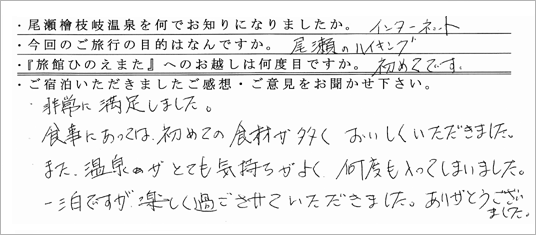 ・尾瀬檜枝岐温泉を何でお知りになりましたか。 インターネット
・今回のご旅行の目的はなんですか。 尾瀬のハイキング
・『旅館ひのえまた』へのお越しは何度目ですか。 初めてです。
・ご宿泊いただきましたご感想・ご意見をお聞かせ下さい。
・非常に満足しました。
食事にあっては、初めての食材が多く おいしくいただきました。
また、温泉がとても気持ちがよく、何度も入ってしまいました。
一泊ですが、楽しく過ごさせていただきました。ありがとうござい
ました。